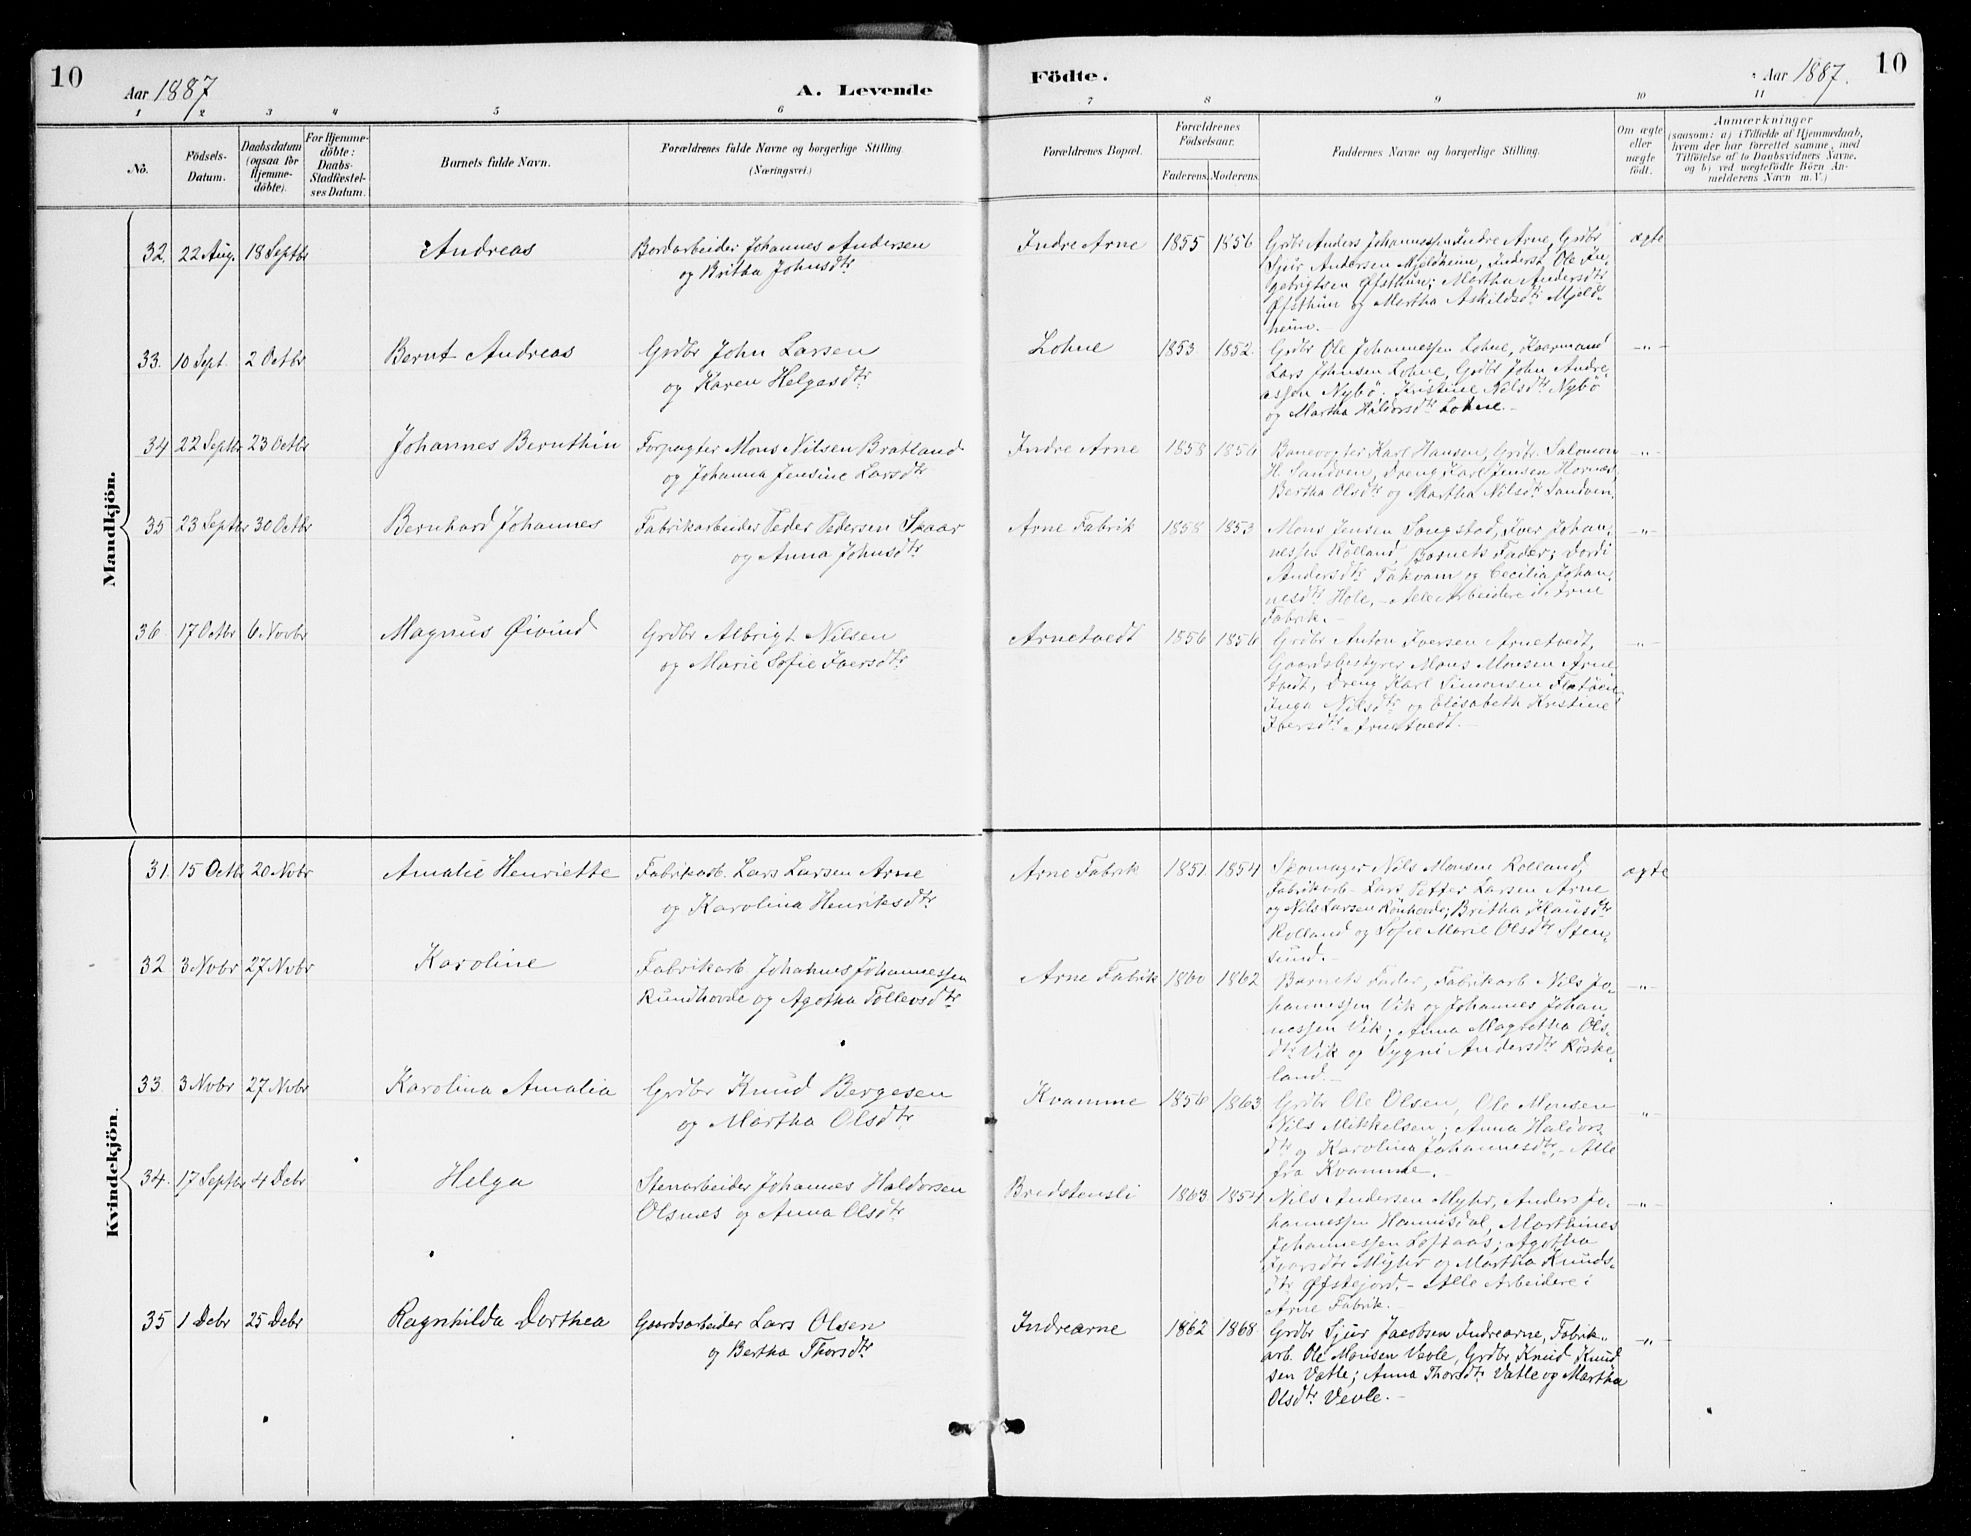 10
Aar 1887
A. Levende
Födte.
Aar 1887.
10
1 2 3 4 5 6 7 8 9 10 11
No.
Födsels-
Datum.
Daabsdatum
(ogsaa för
Hjemme-
döbte).
For Hjemme-
döbte:
Daabs-
Stadfæstel-
ses Datum.
Barnets fulde Navn.
Forældrenes fulde Navne og borgerlige Stilling.
(Næringsvei.)
Forældrenes Bopæl.
Forældrenes
Födselsaar.
Faderens. Moderens.
Faddernes Navne og borgerlige Stilling.
Om ægte
eller
uægte
födt.
Anmærkninger
(saasom: a) i Tilfælde af Hjemmedaab,
hvem der har forrettet samme, med
Tilföielse af to Daabsvidners Navne.
og b) ved uægtefödte Börn An-
melderens Navn m. V.)
Mandkjön.
32. 22 Aug. 18 Septbr
Andreas
Bordarbeider Johannes Andersen
og Britha Johnsdtr
Indre Arne 1855 1856
Grdbr Anders Johannessen Indre Arne, Grdbr
Sjur Andersen Mjeldheim, Inderst Ole In-
gebrigtsen Øfsthun; Martha Andersdtr
Øfsthun og Martha Askildsdtr Mjeld-
heim.-
ægte
33. 10 Sept. 2 Octbr
Bernt Andreas
Grdbr John Larsen
og Karen Helgesdtr
Lohne 1853 1852.
Grdbr Ole Johannessen Lohne, Kaarmand
Lars Johnsen Lohne, Grdbr John Andre-
assen Nybö; Kristine Nilsdtr Nybö
og Martha Haldorsdtr Lohne.-
-"-
34 22 Septbr 23 Octbr
Johannes Bernthin
Forpagter Mons Nilsen Bratland
og Johanna Jensine Larsdtr
Indre Arne 1858 1856
Banevogter Karl Hansen, Grdbr Salomon
H. Sandven, Dreng Karl Jensen Hornæs,
Bertha Olsdtr og Martha Nilsdtr Sandven.
-"-
35 23 Septbr 30 Octbr
Bernhard Johannes
Fabrikarbeider Peder Pedersen Skaar
og Anna Johnsdtr
Arne Fabrik 1858 1853
Mons Jensen Songstad, Iver Johan-
nessen Rölland, Barnets Fader; Dordi
Andersdtr Takvam og Cecilia Johan-
nesdtr Hole.- Alle Arbeidere i Arne
Fabrik.-
-"-
36. 17 Octbr 6 Novbr
Magnus Øivind
Grdbr Albrigt Nilsen
og Marie Sofie Iversdtr
Arnetvedt 1856 1856
Grdbr Anton Iversen Arnetvedt,
Gaardsbestyrer Mons Monsen Arne
tvedt, Dreng Karl Simonsen Flatöen;
Inga Nilsdtr og Elisabeth Kristine
Iversdtr Arnetvedt.-
-"-
Kvindekjön.
31. 15 Octbr 20 Nvbr
Amalie Henriette
Fabrikarb. Lars Larsen Arne
og Karolina Henriksdtr
Arne Fabrik 1851 1854
Skomager Nils Monsen Rolland,
Fabrikarb- Lars Petter Larsen Arne
og Nils Larsen Rönhovde; Britha Hansdtr
Rolland og Sofie Marie Olsdtr Sten-
sund.-
ægte
32 3 Nvbr 27 Nvbr
Karoline
Fabrikarb. Johannes Johannessen
Rundhovde og Agotha Tollevsdtr
Arne Fabrik 1860 1862
Barnets Fader, Fabrikarb Nils Jo-
hannessen Vik og Johannes Johan-
nessen Vik; Anna Magretha Ols-
dtr Vik og Sygni Andersdtr Röske-
land.-
-"-
33. 3 Nvbr 27 Nvbr
Karolina Amalia
Grdbr Knud Bergesen
og Martha Olsdtr
Kvamme 1856 1863
Grdbr Ole Olsen, Ole Monsen
Nils Mikkelsen; Anna Haldors
dtr og Karolina Johannesdtr,- Alle
fra Kvamme.-
"-
34. 17 Septbr 4 Dcbr
Helga
Stenarbeider Johannes Haldorsen
Olsnæs og Anna Olsdtr
Bredstensli 1863 1854
Nils Andersen Myhr, Anders Jo-
hannessen Hannisdal, Marthines
Johannessen Loftaas; Agotha
Ivarsdtr Myhr og Martha Knuds-
dtr Øfstejord.- Alle Arbeidere i
Arne Fabrik.-
-"-
35 1 Dcbr 25 Dcbr
Ragnhilda Dorthea
Gaardsarbeider Lars Olsen
og Bertha Thorsdtr
Indrearne 1862 1868
Grdbr Sjur Jacobsen Indrearne, Fabrik-
arb. Ole Monsen Vevle, Grdbr Knud Knud
sen Vatle; Anna Thorsdtr Vatle og Martha
Olsdtr Vevle.-
-"-